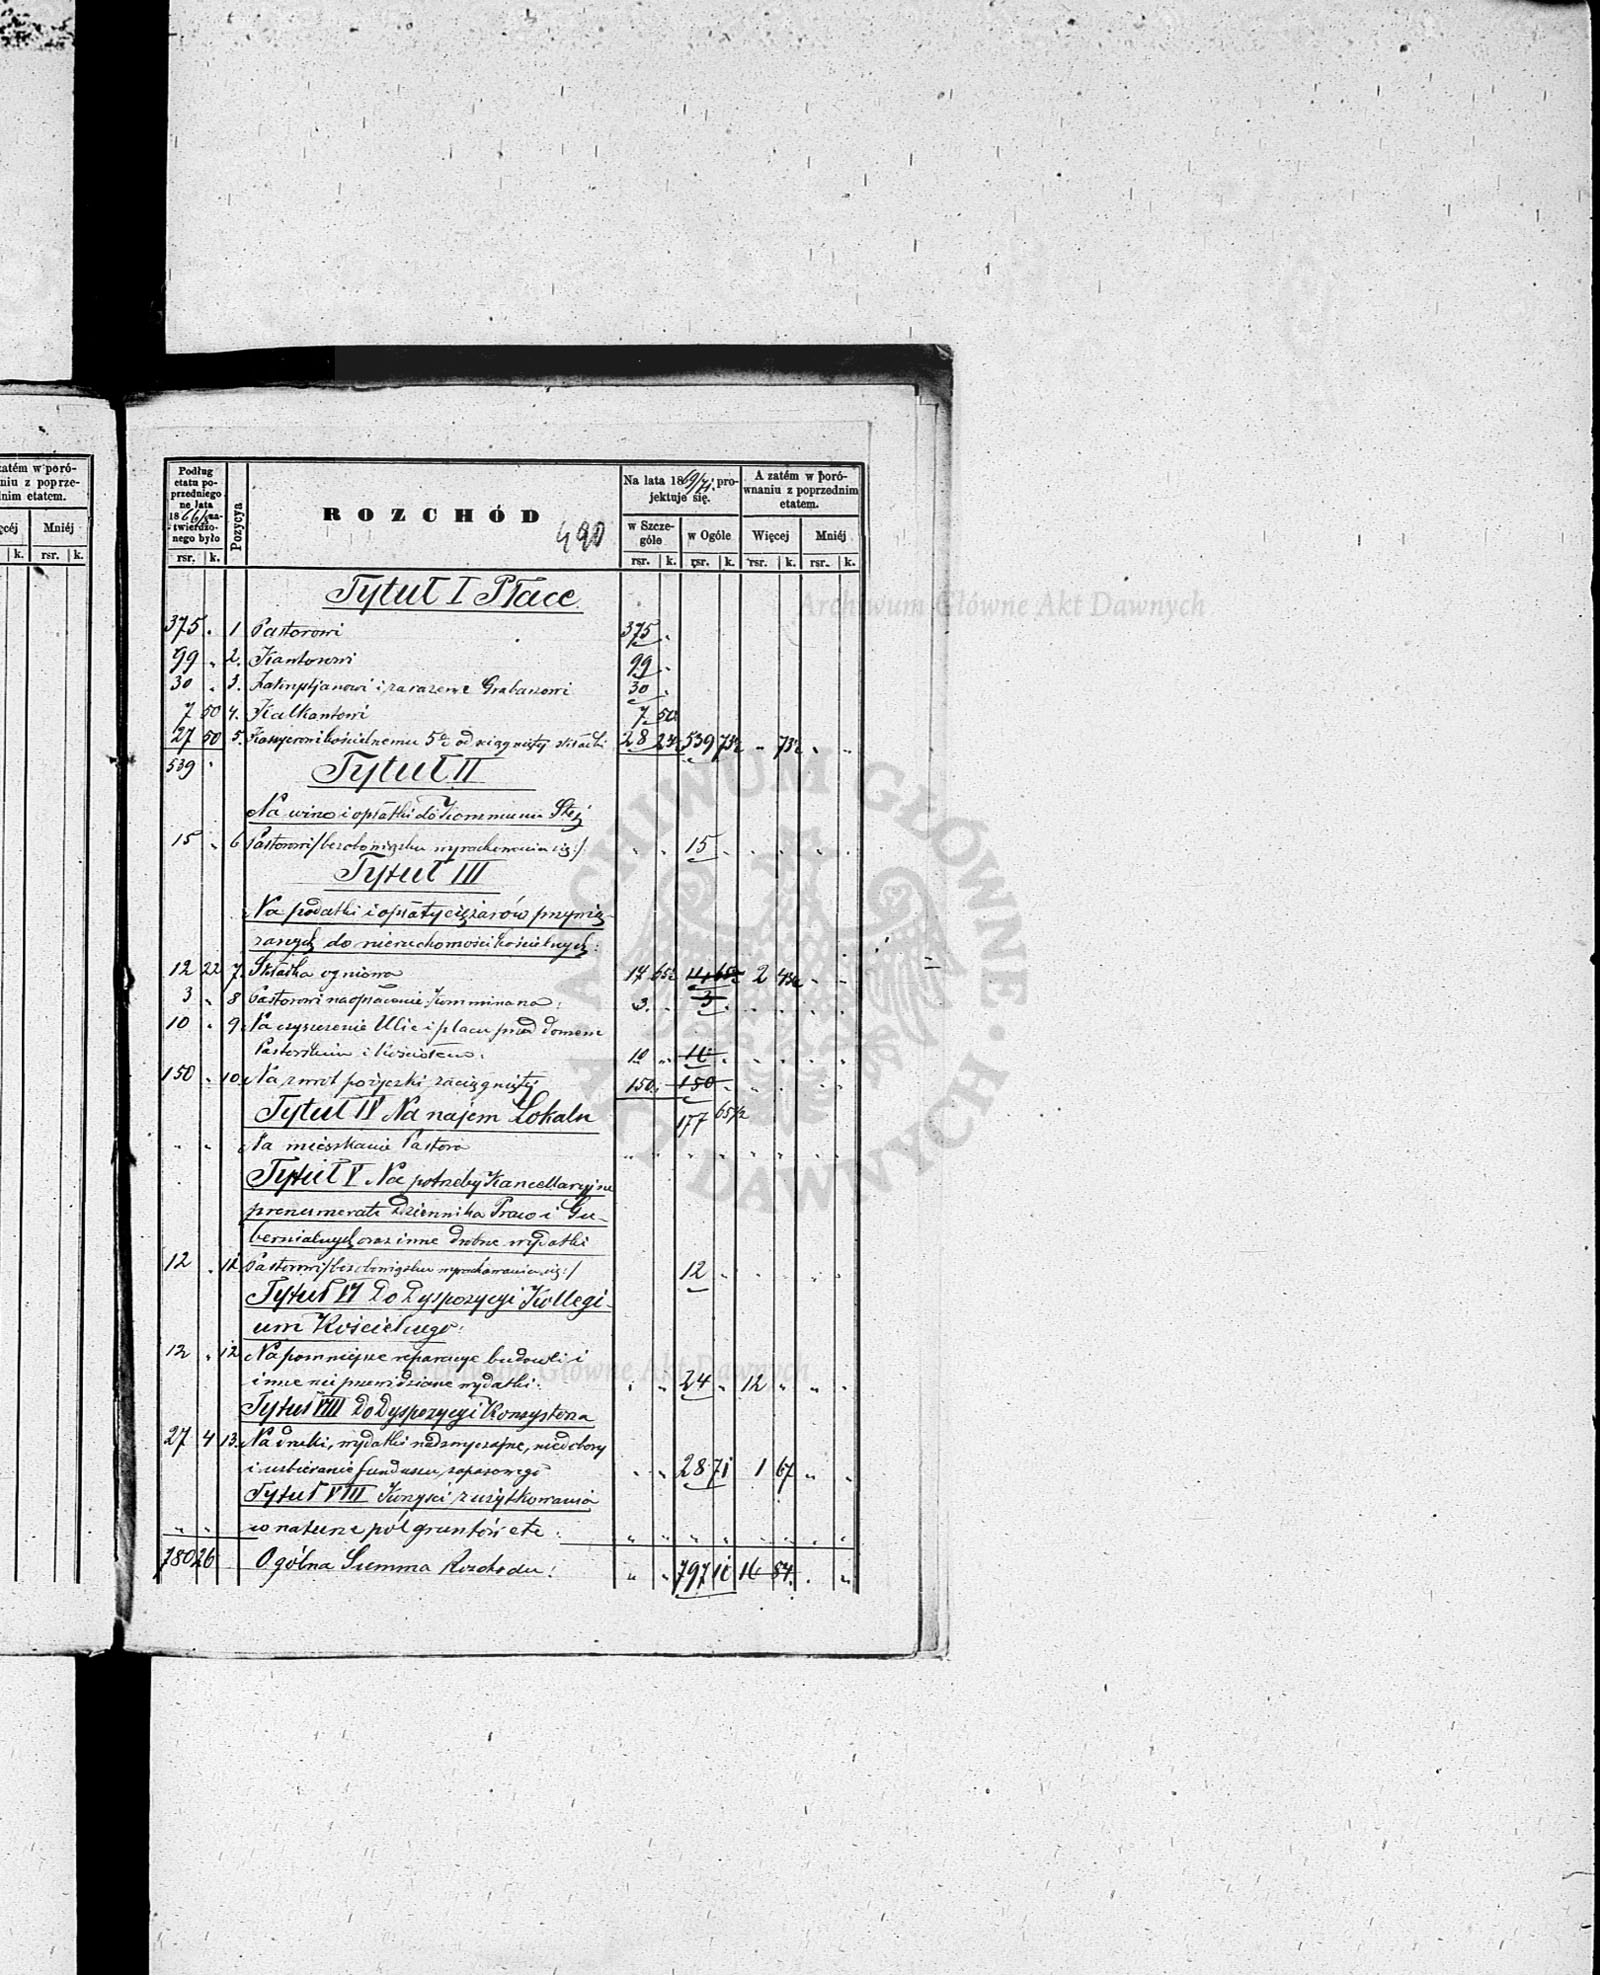 zatém w poró-
niu z poprze-
nim etatem.
ęcéj Mniéj
k. rsr. k.
Podług
etatu po-
przedniego
na lata
1866/8 za-
twierdzo-
nego było
rsr. k.
Pozycya
ROZCHÓD
490
Na lata 1869/71 pro-
jektuje się.
w Szcze-
góle w Ogóle
rsr. k. rsr. k.
A zatém w poró-
wnaniu z poprzednim
etatem.
Więcej Mniéj
rsr. k. rsr. k.
Tytuł I Płace
375 " 1 Pastorowi 375 "
99 " 2. Kantorowi 99 "
30 " 3. Zakrystjanowi i zarazem Grabarzowi 30 "
7 50 4. Kalkantowi 7 50
27 50 5. Kassyerowi kościelnemu 5% od ściągniętej składki 28 23½ 539 73½ " 73½ " "
539 "
Tytuł II
Na wino i opłatki do Kommunii Stej
15 " 6 Pastorowi /bez obowiązku wyrachowania się:/ " " 15 " " " " "
Tytuł III
Na podatki i opłaty ciężarów przywią-
zanych do nieruchomości kościelnych:
12 22 7. Składka ogniowa 14 65½ 14 65½ 2 43½ " "
3 " 8 Pastorowi na opłacenie Kominiarza: 3 " 3 " " " " "
10 " 9 Na czyszczenie Ulic i placu przed domem
Pastorskim i Kościołem: 10 " 10 " " " " "
150 " 10. Na zwrot pożyczki zaciągniętej 150 " 150 " " " " "
177 65½
Tytuł IV Na najem Lokalu
" " Na mieszkanie Pastora " " " " " " " "
Tytuł V Na potrzeby Kancellaryjne
prenumeratę Dziennika Praw i Gu-
bernialnych oraz inne drobne wydatki
12 " 11. Pastorowi /bez obowiązku wyrachowania się:/ 12 " " " " "
Tytuł VI Do Dyspozycyi Kollegi-
um Kościelnego:
12 " 12 Na pomniejsze reparacye budowli i
inne nieprzewidziane wydatki: " " 24 " 12 " " "
Tytuł VII Do Dyspozycyi Konsystorza
27 4 13. Na druki, wydatki nadzwyczajne, niedobory
i uzbieranie funduszu zapasowego " " 28 71 1 67 " "
Tytuł VIII Korzyści z użytkowania
" " w naturze pól gruntów etc: " " " " " " " "
780 26 Ogólna Summa Rozchodu: " " 797 10 16 84 " "
Archiwum Główne Akt Dawnych
ARCHIWUM GŁÓWNE AKT DAWNYCH
Archiwum Główne Akt Dawnych